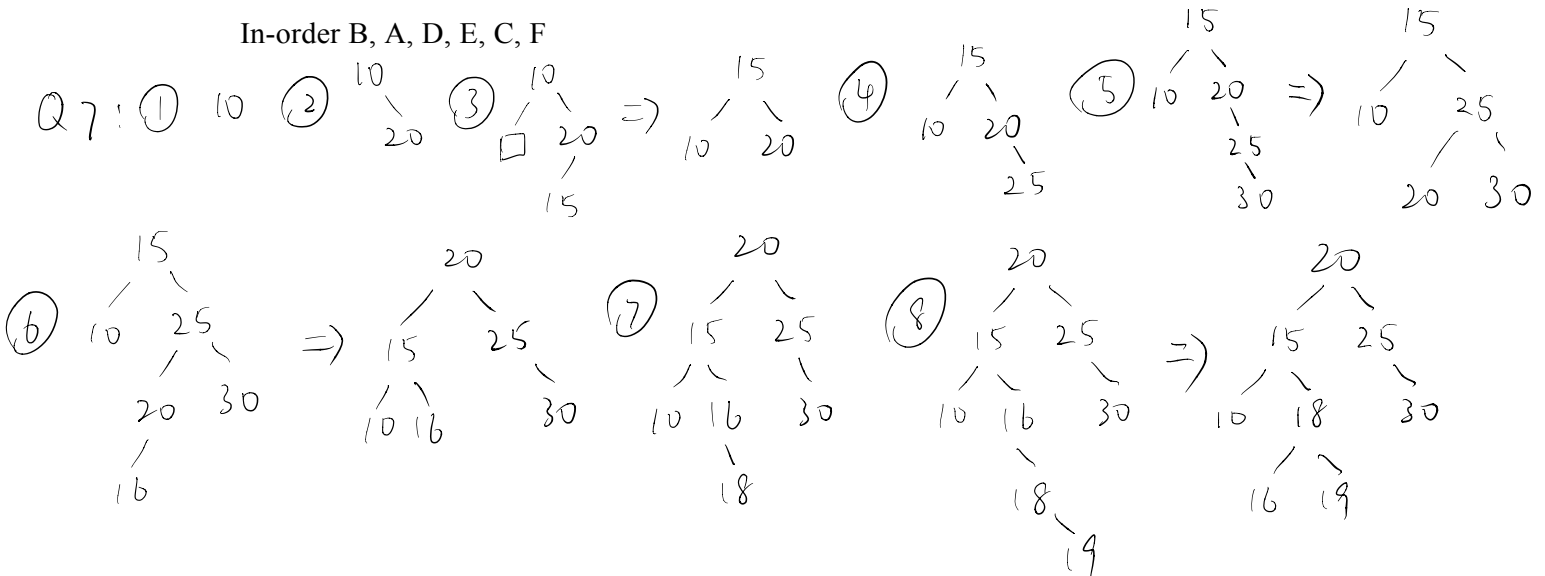 In-order B, A, D, E, C, F
Q7: ① 10 ② 10 20 ③ 10 20 15 => 15 10 20 ④ 15 10 20 25 ⑤ 15 10 20 25 30 => 15 10 25 20 30
⑥ 15 10 25 20 30 16 => 20 15 25 10 16 30 ⑦ 20 15 25 10 16 30 18 ⑧ 20 15 25 10 16 30 18 19 => 20 15 25 10 18 30 16 19